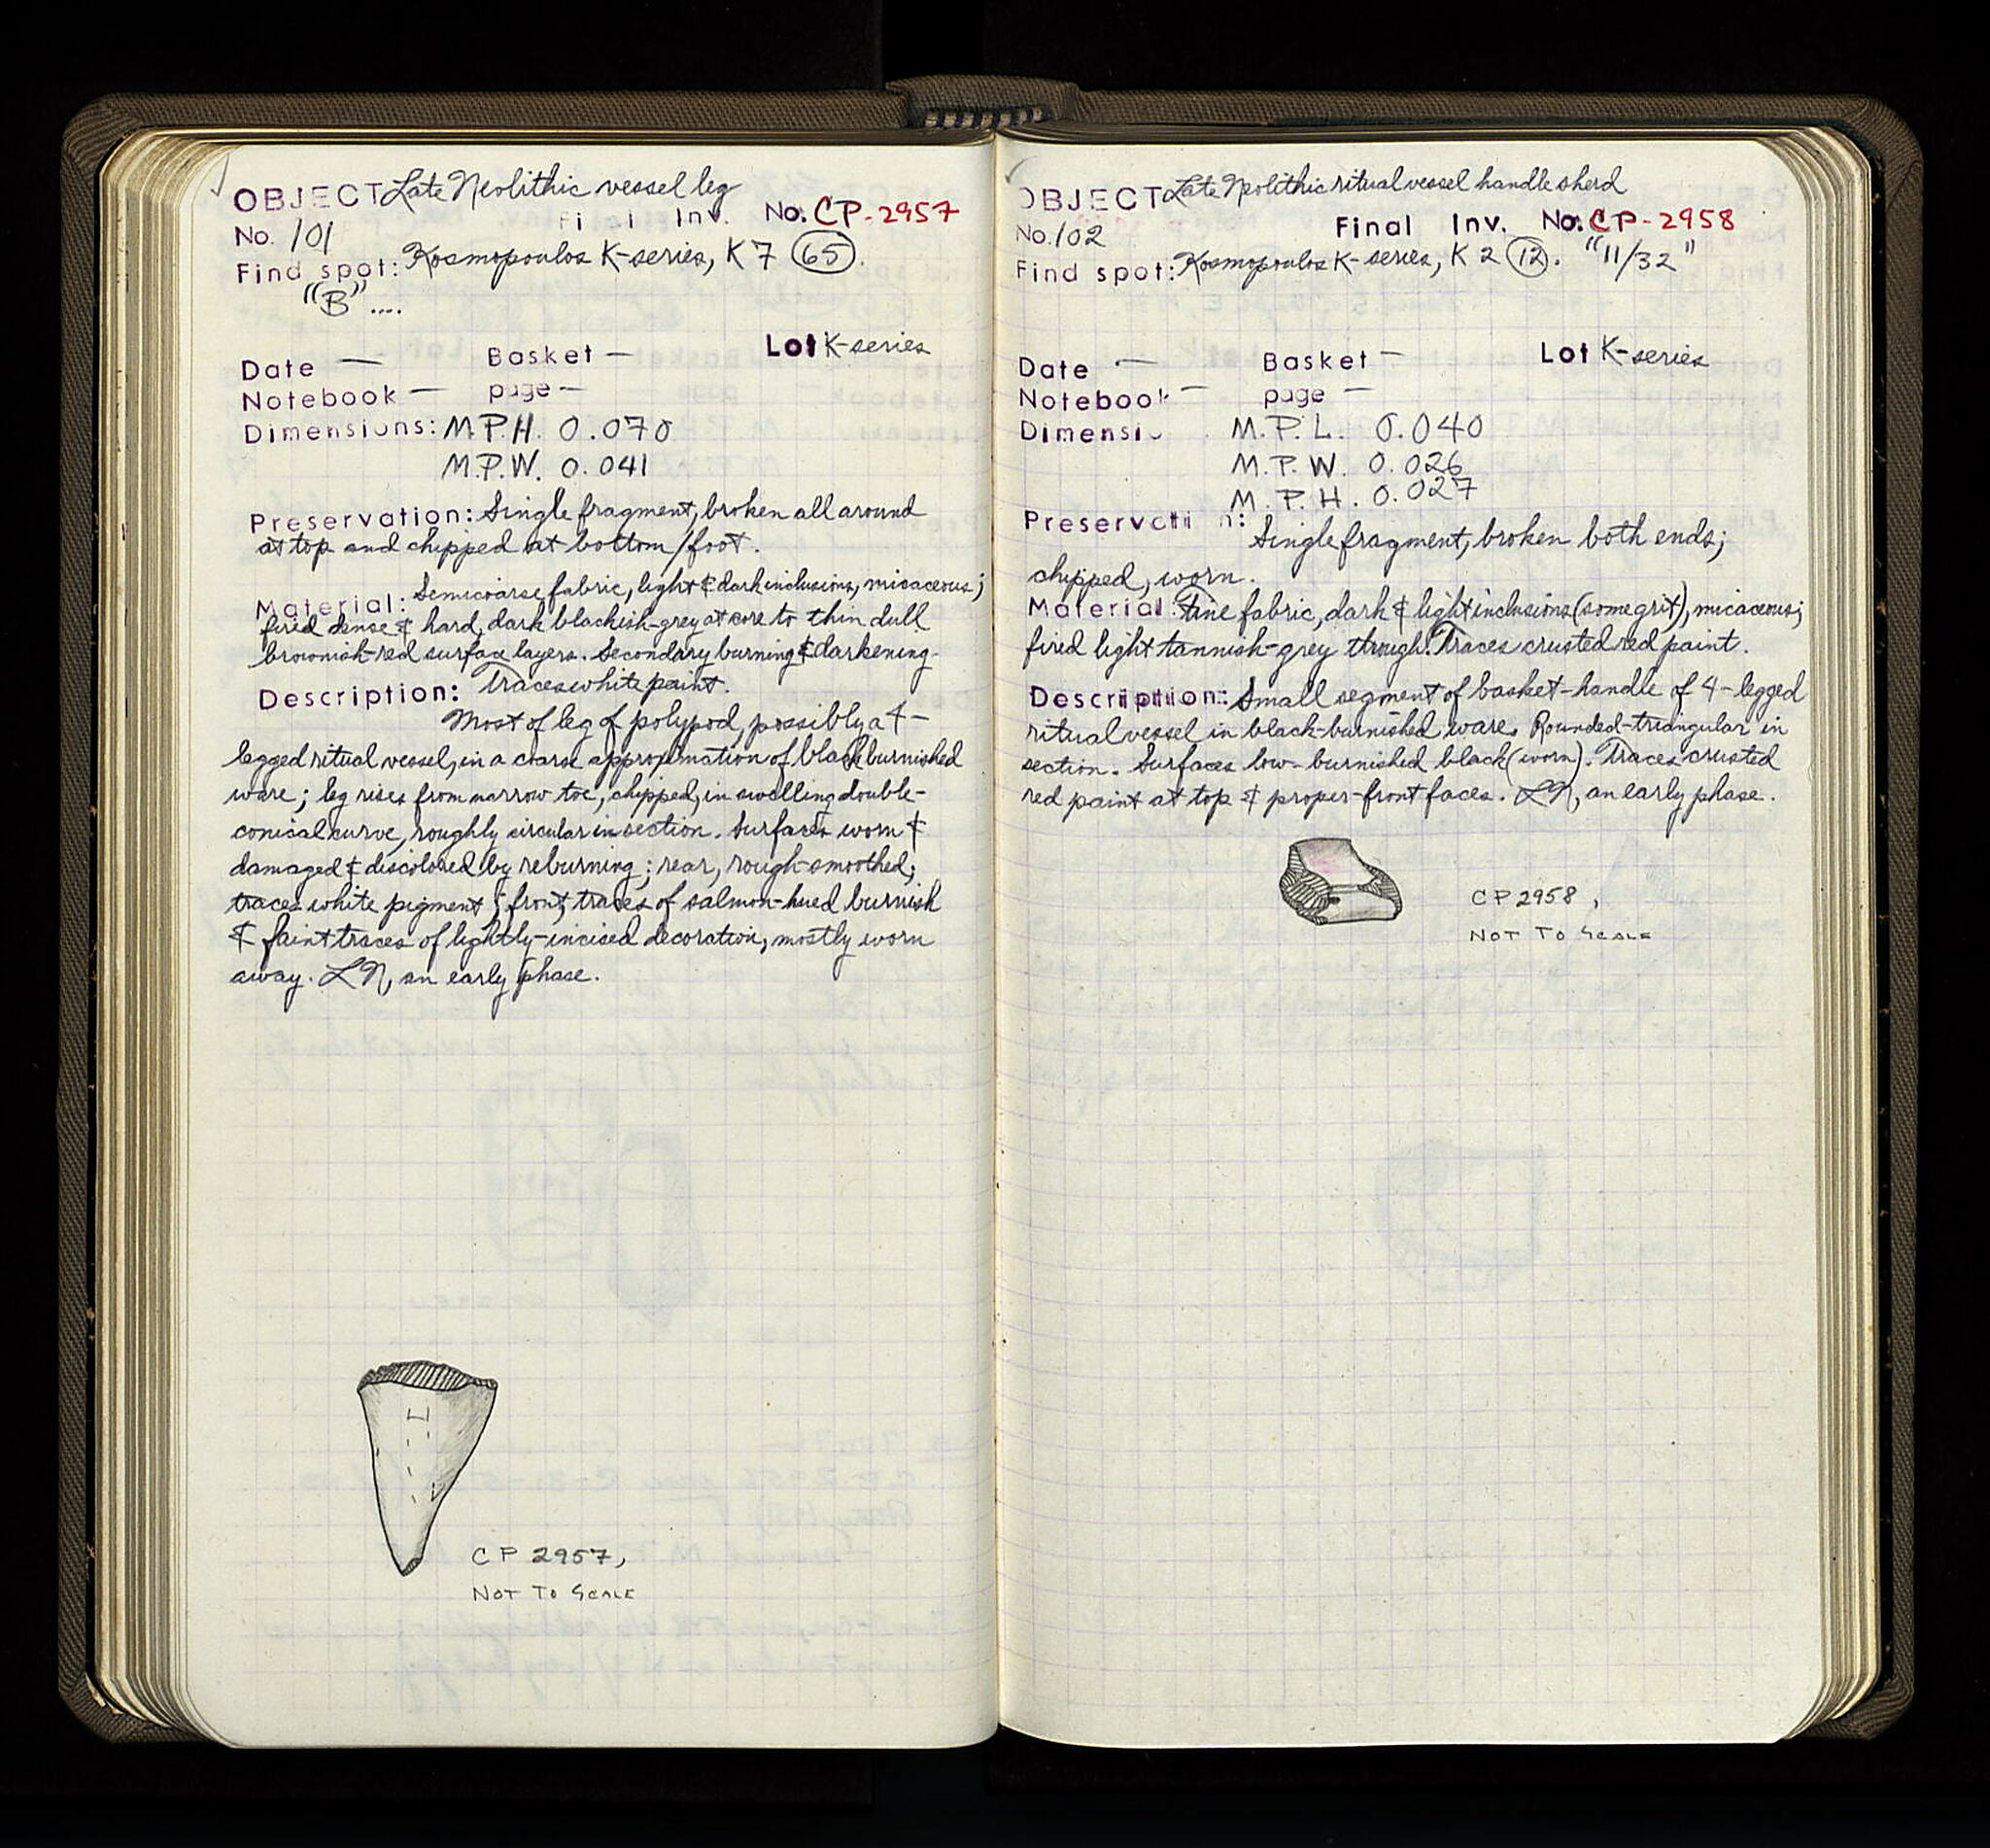 OBJECT Late Neolithic vessel leg
Fi l Inv. No. CP-2957
No. 101
Find spot: Kosmopoulos K-series, K 7 (65).
"B" ....
Date — Basket — Lot K-series
Notebook — page —
Dimensions: M.P.H. 0.070
M.P.W. 0.041
Preservation: Single fragment, broken all around
at top and chipped at bottom/foot.
Material: Semicoarse fabric, light & dark inclusions, micaceous;
fired dense & hard, dark blackish-grey at core to thin dull
brownish-red surface layers. Secondary burning & darkening.
Traces white paint.
Description:
Most of leg of polypod, possibly a 4-
legged ritual vessel, in a coarse approximation of black burnished
ware; leg rises from narrow toe, chipped, in swelling double-
conical curve, roughly circular in section. Surfaces worn &
damaged & discolored by reburning; rear, rough-smoothed;
traces white pigment; front, traces of salmon-hued burnish
& faint traces of lightly-incised decoration, mostly worn
away. LN, an early phase.
CP 2957,
NOT TO SCALE
OBJECT Late Neolithic ritual vessel handle sherd
Final Inv. No. CP-2958
No. 102
Find spot: Kosmopoulos K-series, K 2 (12). "11/32"
Date — Basket — Lot K-series
Notebook — page —
Dimensi M.P.L. 0.040
M.P.W. 0.026
M.P.H. 0.027
Preservation:
Single fragment, broken both ends;
chipped, worn.
Material: Fine fabric, dark & light inclusions (some grit), micaceous;
fired light tannish-grey through. Traces crusted red paint.
Description: Small segment of basket-handle of 4-legged
ritual vessel in black-burnished ware. Rounded-triangular in
section. Surfaces low-burnished black (worn). Traces crusted
red paint at top & proper-front faces. LN, an early phase.
CP 2958,
NOT TO SCALE